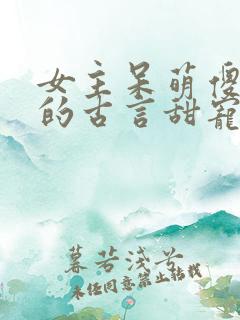 女主呆萌傻
的古言甜宠
暮若浅兮
未经同意禁止转载